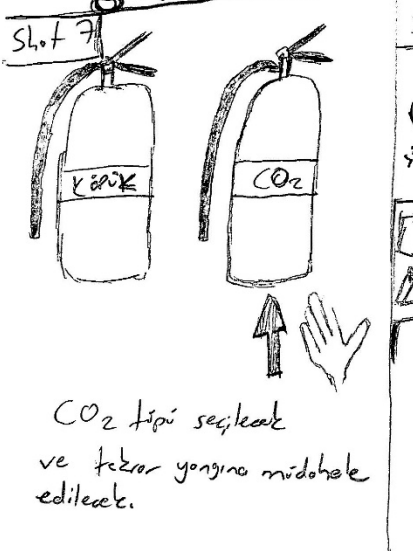 Shot 7
KÖPÜK
CO2
CO2 tüpü seçilecek
ve tekrar yangına müdahele
edilecek.